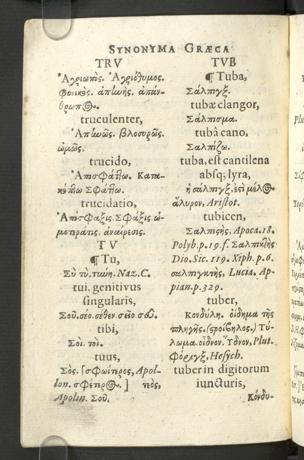 SYNONYMA GRÆCA
TRV
Ἀγριωπὸς. Ἀγριόθυμος.
Φονικὸς. ἀπηνὴς. ἀπάν-
θρωπ@.
truculenter,
Ἀπηνῶς. βλοσυρῶς.
ὠμῶς.
trucido,
Ἀποσφάττω. Κατα-
Σφάττω.
trucidatio,
Ἀπόσφαξις. Σφάξις
ἀναίρεσις.
TV
¶ Tu,
Σὺ τὺ. τύνη. Naz. C.
tui, genitivus
singularis,
Σοῦ. σέο. σέθεν σεῖο σεῦ.
tibi,
Σοὶ. τοὶ.
tuus,
Σὸς. [σφωΐτερος, Apol-
lon. σφέτερ@.] τεὸς,
Apolin. Σοῦ.
TVB
¶ Tuba,
Σάλπιγξ.
tubæ clangor,
Σάλπισμα.
tubâ cano,
Σαλπίζω.
tuba, est cantilena
absq; lyra,
ἡ σάλπιγξ. ἐστὶ μέλ@
ἄλυρον. Aristot.
tubicen,
Σαλπιστὴς, Apoca. 18.
Polyb. p. 19. f. Σαλπικτὴς
Dio. Sic. 119. Xiph. p. 6.
σαλπιγκτὴς. Lucia. Ap-
pian. p. 329.
tuber,
Κονδύλη. οἴδημα τῆς
πληγῆς. Τύ-
λωμα. οἶδνον. Ὕδνον, Plut.
Hesych.
tuber in digitorum
iuncturis,
Κόνδυ-